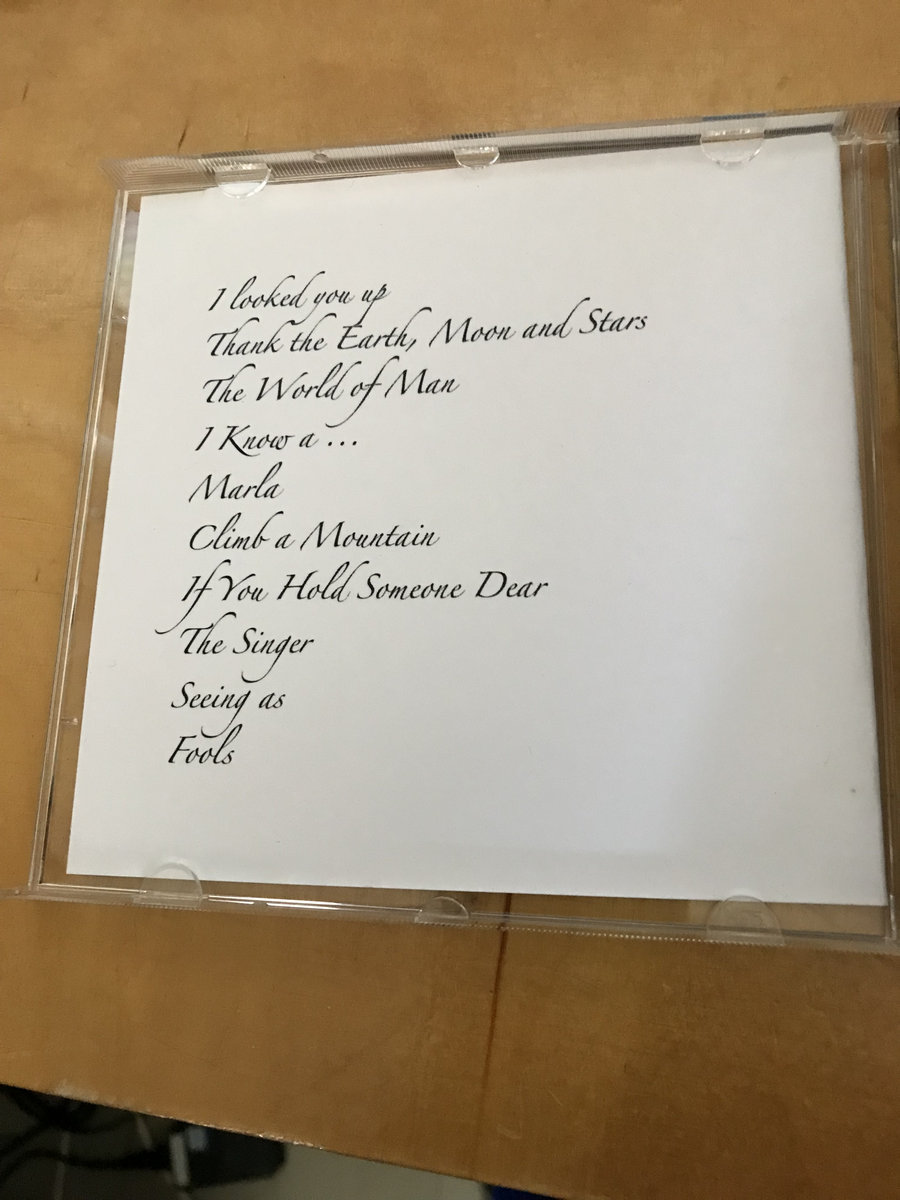 I looked you up
Thank the Earth, Moon and Stars
The World of Man
I Know a ...
Marla
Climb a Mountain
If You Hold Someone Dear
The Singer
Seeing as
Fools